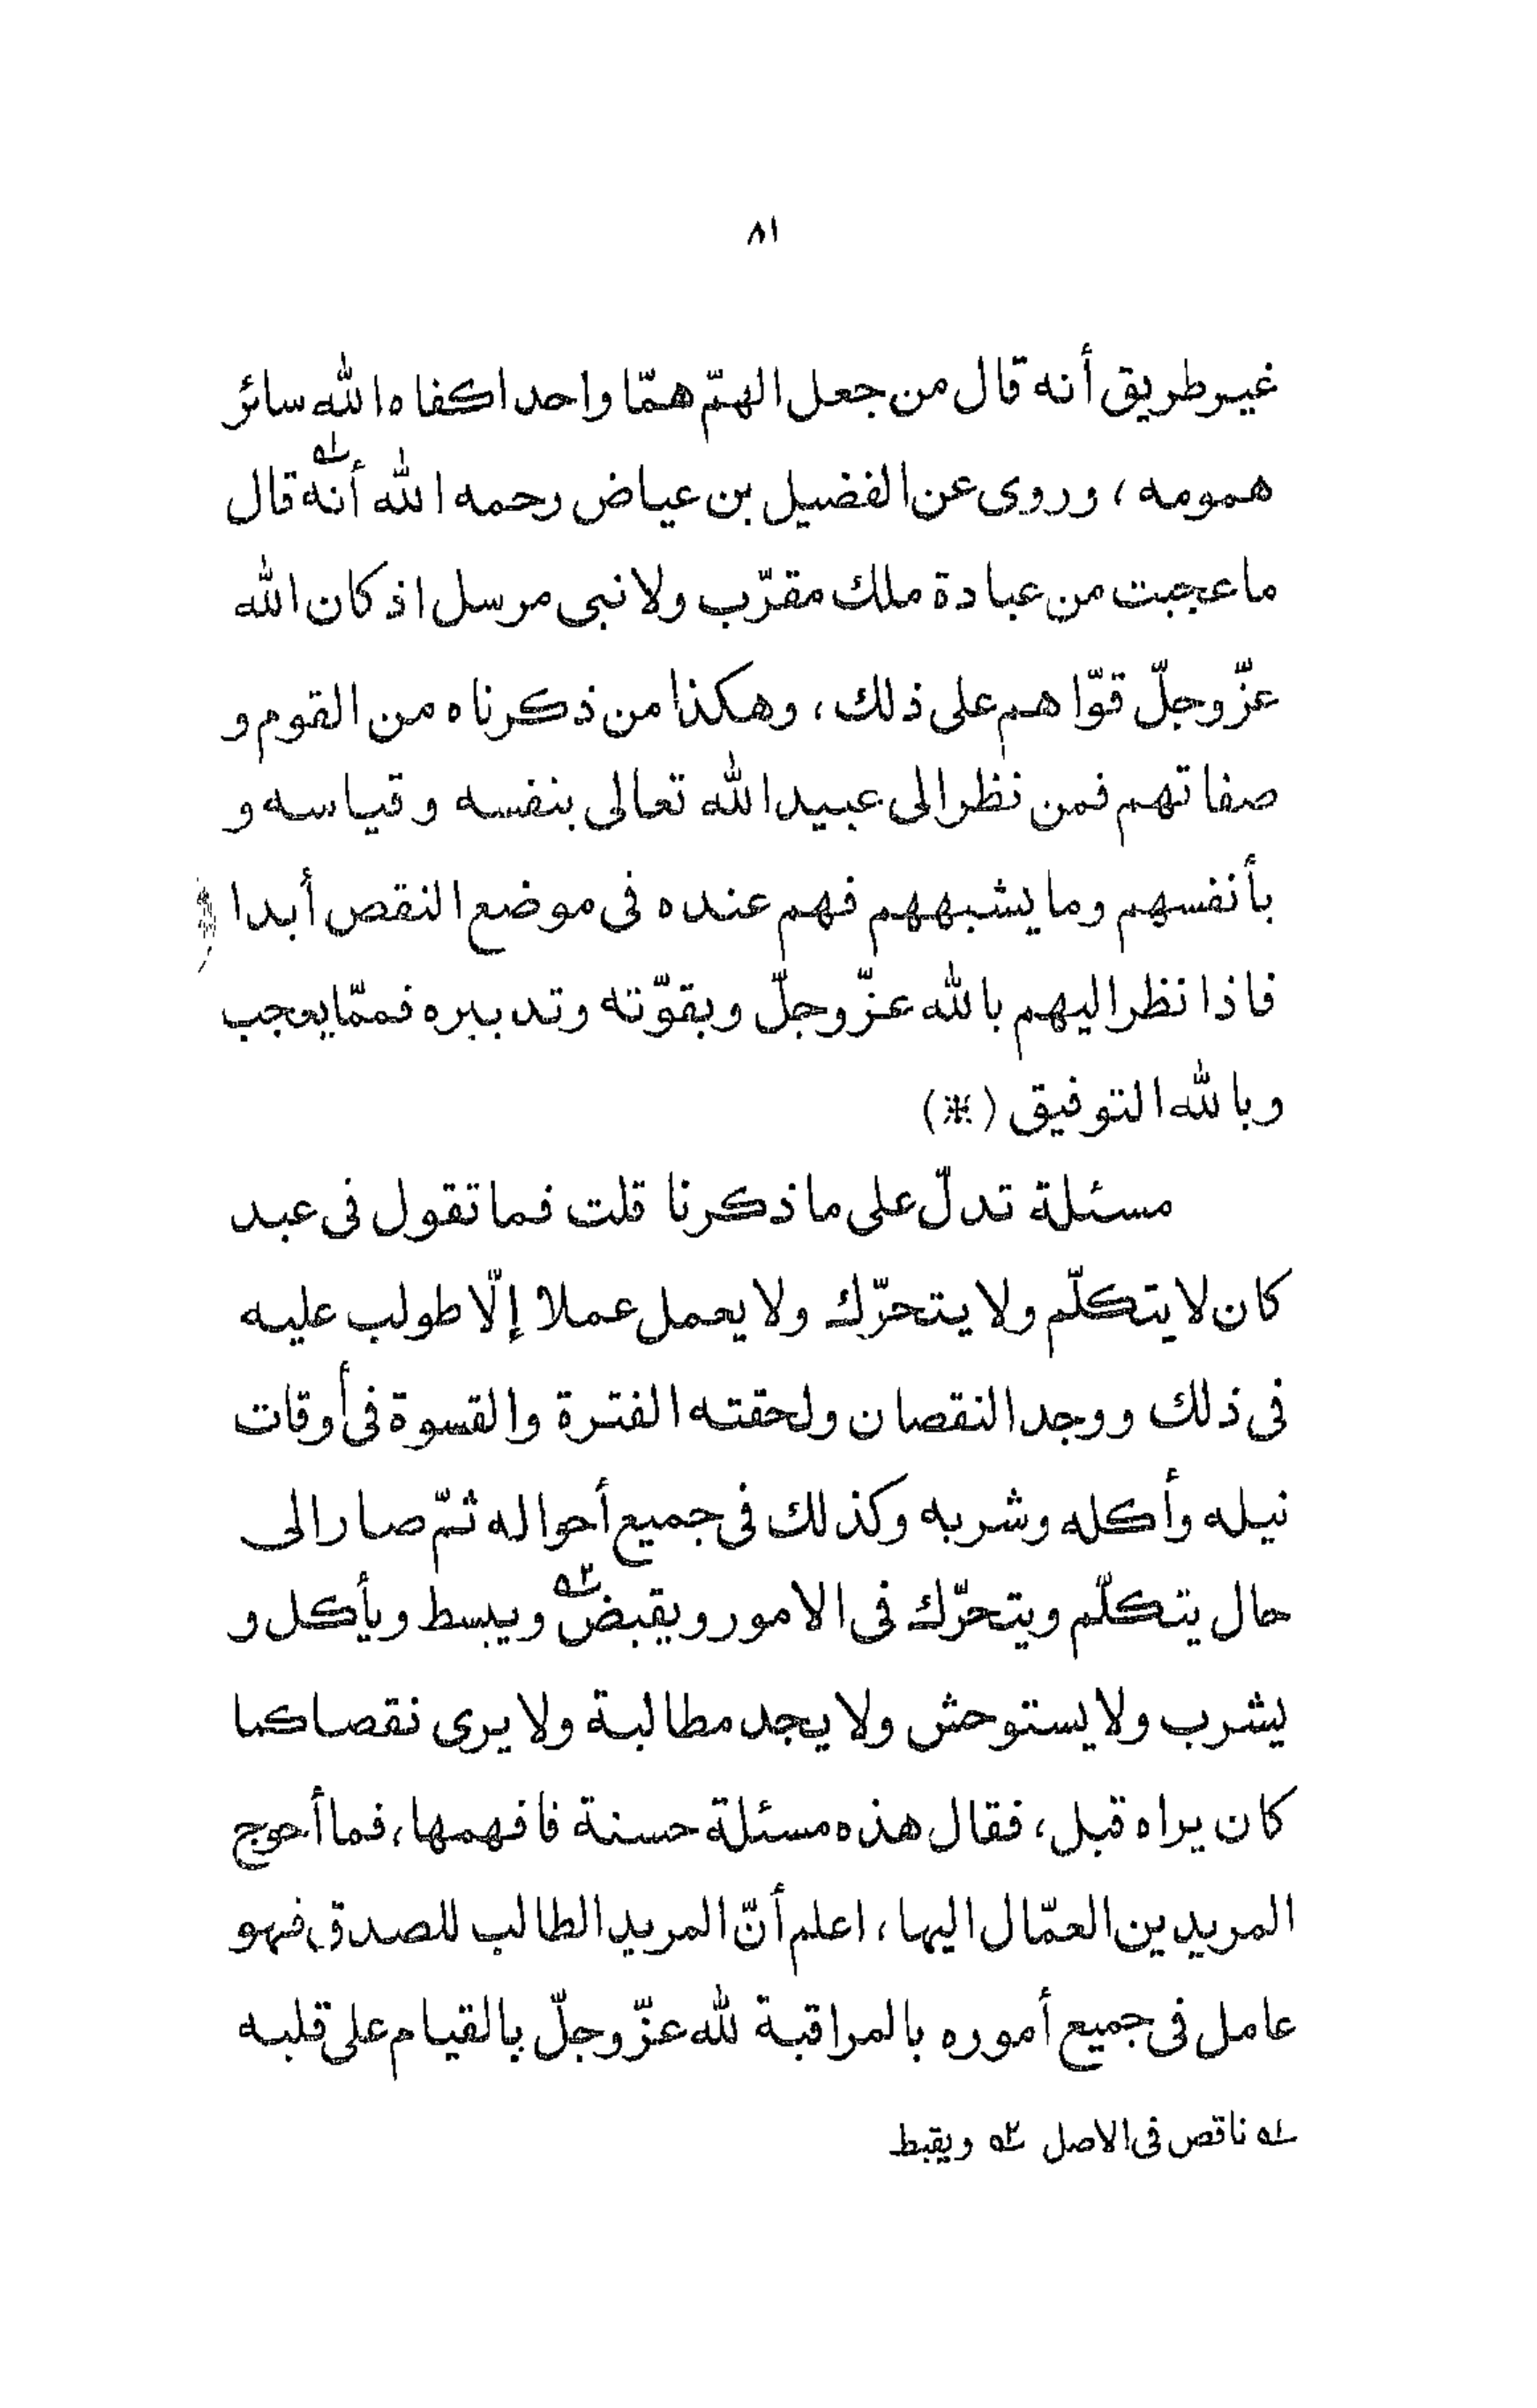 ٨١
غير طريق أنه قال من جعل الهمّ همّا واحدا كفاه الله سائر
همومه، وروى عن الفضيل بن عياض رحمه الله أنه١ قال
ما عجبت من عبادة ملك مقرّب ولا نبى مرسل اذ كان الله
عزّ وجلّ قوّاهم على ذلك، وهكذا من ذكرناه من القوم و
صفاتهم فمن نظر الى عبيد الله تعالى بنفسه وقياسه و
بأنفسهم وما يشبههم فهم عنده فى موضع النقص أبدا
فاذا نظر اليهم بالله عزّ وجلّ وبقوّته وتدبيره فممّا يعجب
وبالله التوفيق (*)
مسئلة تدلّ على ما ذكرنا قلت فما تقول فى عبد
كان لا يتكلّم ولا يتحرّك ولا يعمل عملا إلّا طولب عليه
فى ذلك ووجد النقصان ولحقته الفترة والقسوة فى أوقات
نيله وأكله وشربه وكذلك فى جميع أحواله ثمّ صار الى
حال يتكلّم ويتحرّك فى الامور ويقبض٢ ويبسط ويأكل و
يشرب ولا يستوحش ولا يجد مطالبة ولا يرى نقصا كما
كان يراه قبل، فقال هذه مسئلة حسنة فافهمها، فما أحوج
المريدين العمّال اليها، اعلم أنّ المريد الطالب للصدق فهو
عامل فى جميع أموره بالمراقبة لله عزّ وجلّ بالقيام على قلبه
١ ناقص فى الاصل ٢ ويقبط